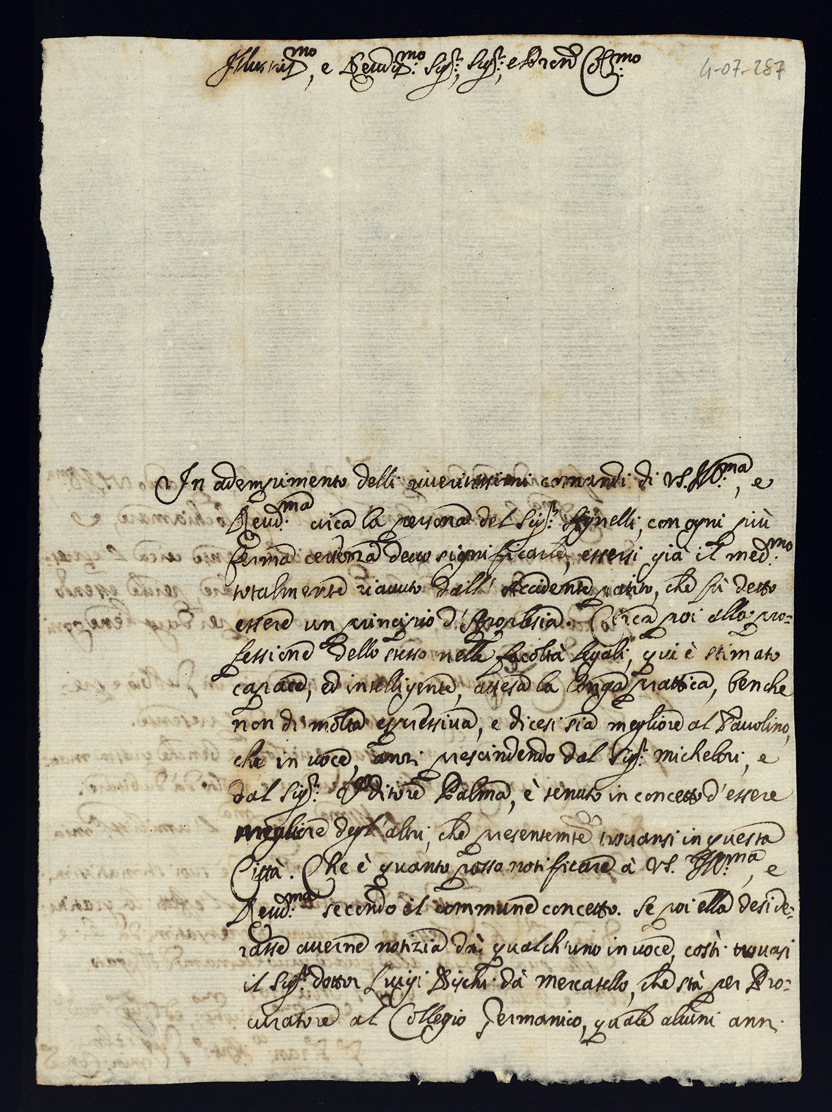 Illustris.mo, e Reverd.mo Sig:r Sig:r e Pron Col.mo
4-07-287
In adempimento delli riveritissimi comandi di VS. Ill:ma, e
Reud.ma circa la persona del Sig:r Agnelli, con ogni più
ferma certezza devo significarle, essersi già il med.mo
totalmente riavuto dall'Accidente patito, che fù detto
essere un principio d'Apoplesia. Circa poi alla pro-
fessione dello stesso nelle facoltà legali, qui è stimato
capace, ed intelligente, attesa la longa prattica, benche
non di molta espressiva, e dicesi sia megliore al Tavolino,
che in voce, anzi prescindendo dal Sig:r Michelori, e
dal Sig:r Auditore Palma, è tenuto in concetto d'essere
megliore degl'altri, che presentemte trovansi in questa
Città. Che è quanto posso notificare à VS. Ill:ma, e
Reud.ma secondo il commune concetto. Se poi ella deside-
rasse averne notizia dà qualch'uno in voce, costì trovasi
il Sig:r dottor Luigi Bischi dà Mercatello, che stà per Pro-
curatore al Collegio Germanico, quale alcuni anni